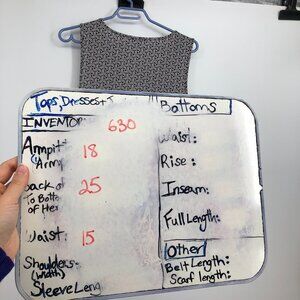 Tops, Dresses+
INVENTOR
630
Armpit
18
25
To Botto
of Hem
Waist:
15
Shoulders:
(width)
Sleeve Leng
Bottoms
Waist:
Rise:
Inseam:
Full Length:
Other
Belt Length:
Scarf length: